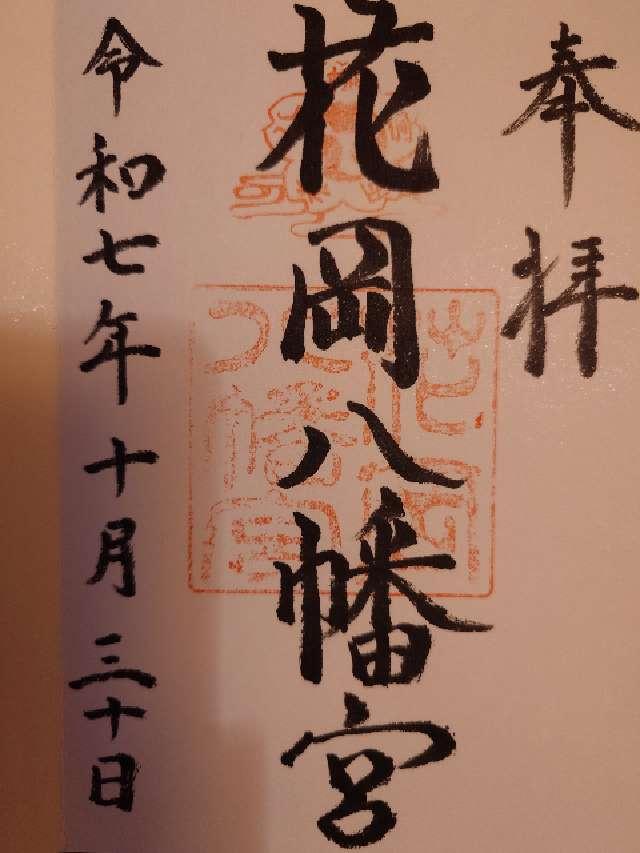 奉拝
花岡八幡宮
令和七年十月三十日